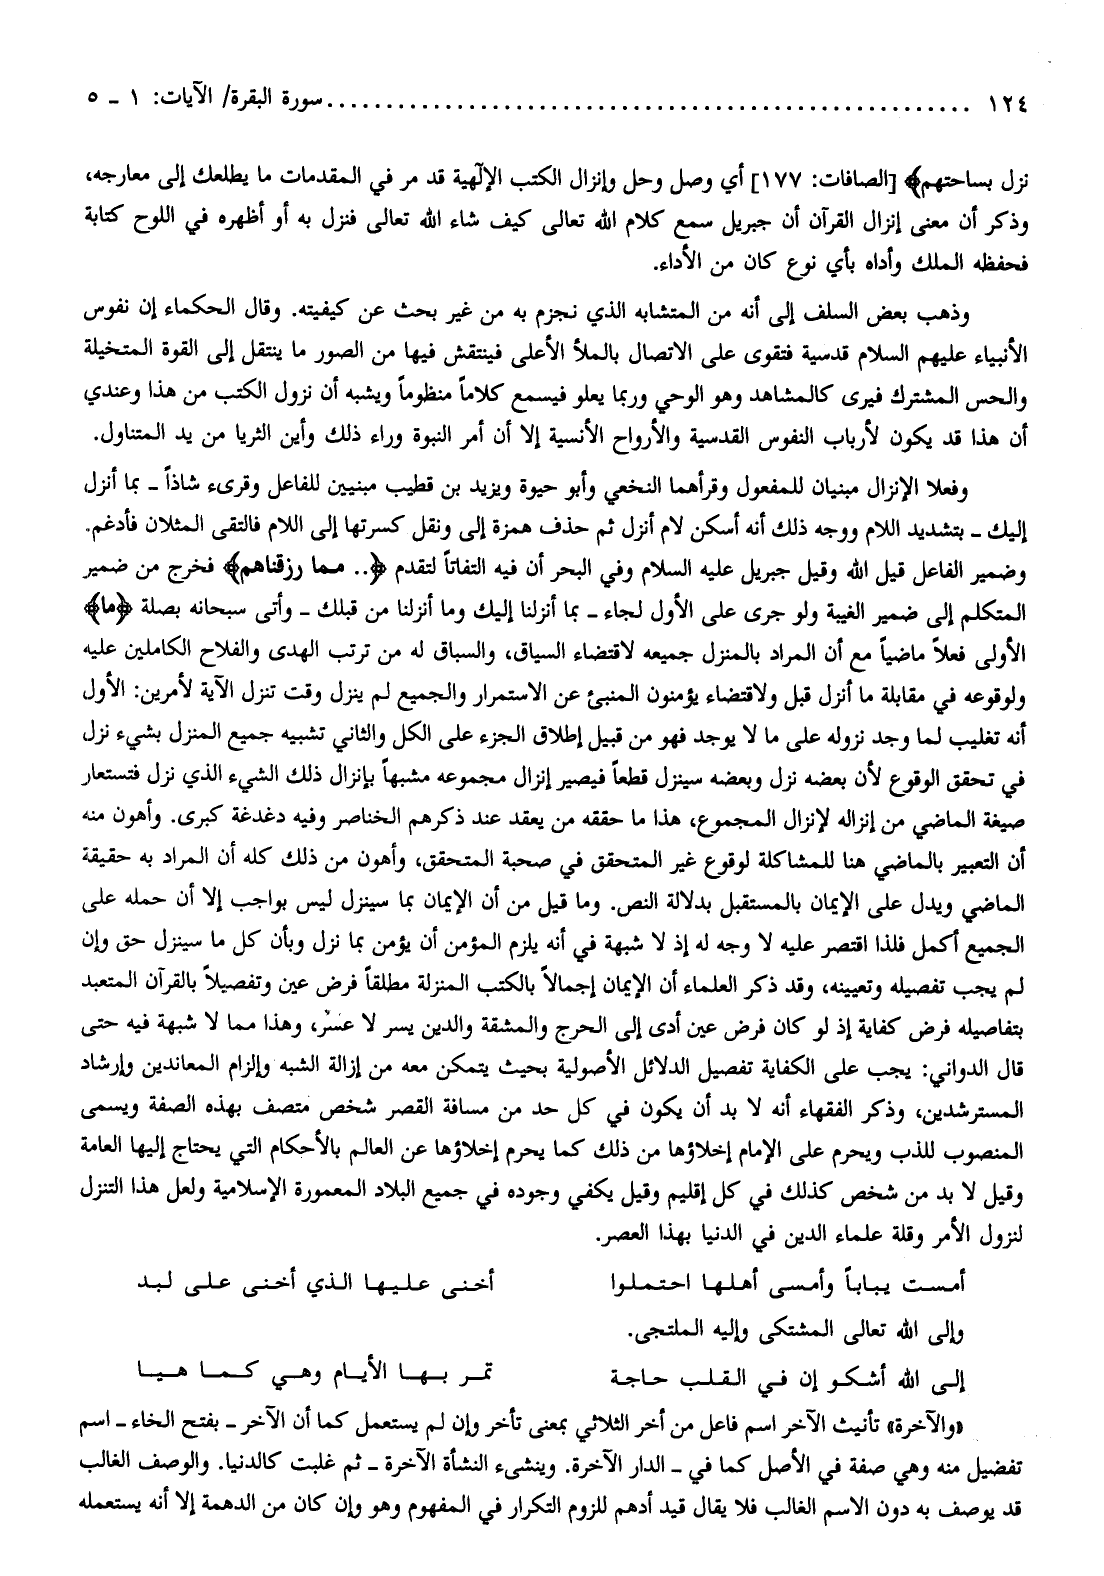 ١٢٤ ........................................................ سورة البقرة/ الآيات: ١ ـ ٥
نزل بساحتهم﴾ [الصافات: ١٧٧] أي وصل وحل وإنزال الكتب الإلٓهية قد مر في المقدمات ما يطلعك إلى معارجه،
وذكر أن معنى إنزال القرآن أن جبريل سمع كلام الله تعالى كيف شاء الله تعالى فنزل به أو أظهره في اللوح كتابة
فحفظه الملك وأداه بأي نوع كان من الأداء.
وذهب بعض السلف إلى أنه من المتشابه الذي نجزم به من غير بحث عن كيفيته. وقال الحكماء إن نفوس
الأنبياء عليهم السلام قدسية فتقوى على الاتصال بالملأ الأعلى فينتقش فيها من الصور ما ينتقل إلى القوة المتخيلة
والحس المشترك فيرى كالمشاهد وهو الوحي وربما يعلو فيسمع كلاماً منظوماً ويشبه أن نزول الكتب من هذا وعندي
أن هذا قد يكون لأرباب النفوس القدسية والأرواح الأنسية إلا أن أمر النبوة وراء ذلك وأين الثريا من يد المتناول.
وفعلا الإنزال مبنيان للمفعول وقرأهما النخعي وأبو حيوة ويزيد بن قطيب مبنيين للفاعل وقرىء شاذاً ـ بما أنزل
إليك ـ بتشديد اللام ووجه ذلك أنه أسكن لام أنزل ثم حذف همزة إلى ونقل كسرتها إلى اللام فالتقى المثلان فأدغم.
وضمير الفاعل قيل الله وقيل جبريل عليه السلام وفي البحر أن فيه التفاتاً لتقدم ﴿.. مما رزقناهم﴾ فخرج من ضمير
المتكلم إلى ضمير الغيبة ولو جرى على الأول لجاء ـ بما أنزلنا إليك وما أنزلنا من قبلك ـ وأتى سبحانه بصلة ﴿ما﴾
الأولى فعلاً ماضياً مع أن المراد بالمنزل جميعه لاقتضاء السياق، والسباق له من ترتب الهدى والفلاح الكاملين عليه
ولوقوعه في مقابلة ما أنزل قبل ولاقتضاء يؤمنون المنبئ عن الاستمرار والجميع لم ينزل وقت تنزل الآية لأمرين: الأول
أنه تغليب لما وجد نزوله على ما لا يوجد فهو من قبيل إطلاق الجزء على الكل والثاني تشبيه جميع المنزل بشيء نزل
في تحقق الوقوع لأن بعضه نزل وبعضه سينزل قطعاً فيصير إنزال مجموعه مشبهاً بإنزال ذلك الشيء الذي نزل فتستعار
صيغة الماضي من إنزاله لإنزال المجموع، هذا ما حققه من يعقد عند ذكرهم الخناصر وفيه دغدغة كبرى. وأهون منه
أن التعبير بالماضي هنا للمشاكلة لوقوع غير المتحقق في صحبة المتحقق، وأهون من ذلك كله أن المراد به حقيقة
الماضي ويدل على الإيمان بالمستقبل بدلالة النص. وما قيل من أن الإيمان بما سينزل ليس بواجب إلا أن حمله على
الجميع أكمل فلذا اقتصر عليه لا وجه له إذ لا شبهة في أنه يلزم المؤمن أن يؤمن بما نزل وبأن كل ما سينزل حق وإن
لم يجب تفصيله وتعيينه، وقد ذكر العلماء أن الإيمان إجمالاً بالكتب المنزلة مطلقاً فرض عين وتفصيلاً بالقرآن المتعبد
بتفاصيله فرض كفاية إذ لو كان فرض عين أدى إلى الحرج والمشقة والدين يسر لا عسْر، وهذا مما لا شبهة فيه حتى
قال الدواني: يجب على الكفاية تفصيل الدلائل الأصولية بحيث يتمكن معه من إزالة الشبه وإلزام المعاندين وإرشاد
المسترشدين، وذكر الفقهاء أنه لا بد أن يكون في كل حد من مسافة القصر شخص متصف بهذه الصفة ويسمى
المنصوب للذب ويحرم على الإمام إخلاؤها من ذلك كما يحرم إخلاؤها عن العالم بالأحكام التي يحتاج إليها العامة
وقيل لا بد من شخص كذلك في كل إقليم وقيل يكفي وجوده في جميع البلاد المعمورة الإسلامية ولعل هذا التنزل
لنزول الأمر وقلة علماء الدين في الدنيا بهذا العصر.
أمست يباباً وأمسى أهلها احتملوا أخنى عليها الذي أخنى على لبد
وإلى الله تعالى المشتكى وإليه الملتجى.
إلى الله أشكو إن في القلب حاجة تمر بها الأيام وهي كما هيا
«والآخرة» تأنيث الآخر اسم فاعل من أخر الثلاثي بمعنى تأخر وإن لم يستعمل كما أن الآخر ـ بفتح الخاء ـ اسم
تفضيل منه وهي صفة في الأصل كما في ـ الدار الآخرة. وينشىء النشأة الآخرة ـ ثم غلبت كالدنيا. والوصف الغالب
قد يوصف به دون الاسم الغالب فلا يقال قيد أدهم للزوم التكرار في المفهوم وهو وإن كان من الدهمة إلا أنه يستعمله